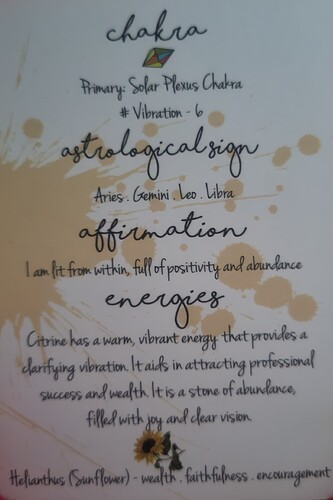 chakra
Primary: Solar Plexus Chakra
# Vibration - 6
astrological sign
Aries . Gemini . Leo . Libra
affirmation
I am lit from within, full of positivity and abundance
energies
Citrine has a warm, vibrant energy that provides a
clarifying vibration. It aids in attracting professional
success and wealth. It is a stone of abundance,
filled with joy and clear vision.
Helianthus (Sunflower) - wealth . faithfulness . encouragement